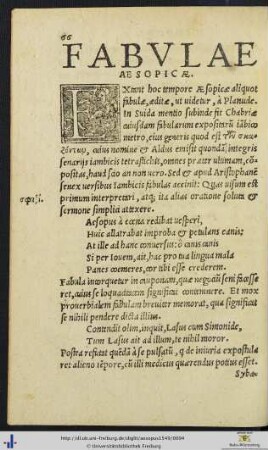 66
FABVLAE
AESOPICÆ.
EXtant hoc tempore Æsopicæ aliquot
fabulæ, æditæ, ut uidetur, à Planude.
In Suida mentio subinde fit Chabriæ
cuiusdam fabularum expositarũ iãbico
metro, eius generis quod est
cuius nomine & Aldus emisit quondã integris
senarijs iambicis tetrasticha, omnes præter ultimam, cõ
positas, haud scio an non uero. Sed & apud Aristophanẽ
senex uersibus Iambicis fabulas recinit: Quas uisum est
primum interpretari, atq; ita alias oratione soluta &
sermone simplici attexere.
σφηξί.
Aesopus à cœna redibat uesperi,
Huic allatrabat improba & petulans canis:
At ille ad hanc conuersus: ô canis canis
Si per Iouem, ait, hac pro tua lingua mala
Panes emeres, cor tibi esse crederem.
Fabula in
ret, cuius se loquacitatem significat contemnere. Et mox
prouerbialem fabulam breuiter memorat, qua significat
se nihil pendere dicta illius.
Contendit olim, inquit, Lasus cum Simonide,
Tum Lasus ait ad illum, te nihil moror.
Postea refitat quẽdã à se pulsatũ, q de iniuria expostula
ret alieno tẽpore, cũ illi medicus quærendus potius esset.
Syba-
http://dl.ub.uni-freiburg.de/diglit/aesopus1545/0094
Universitätsbibliothek Freiburg